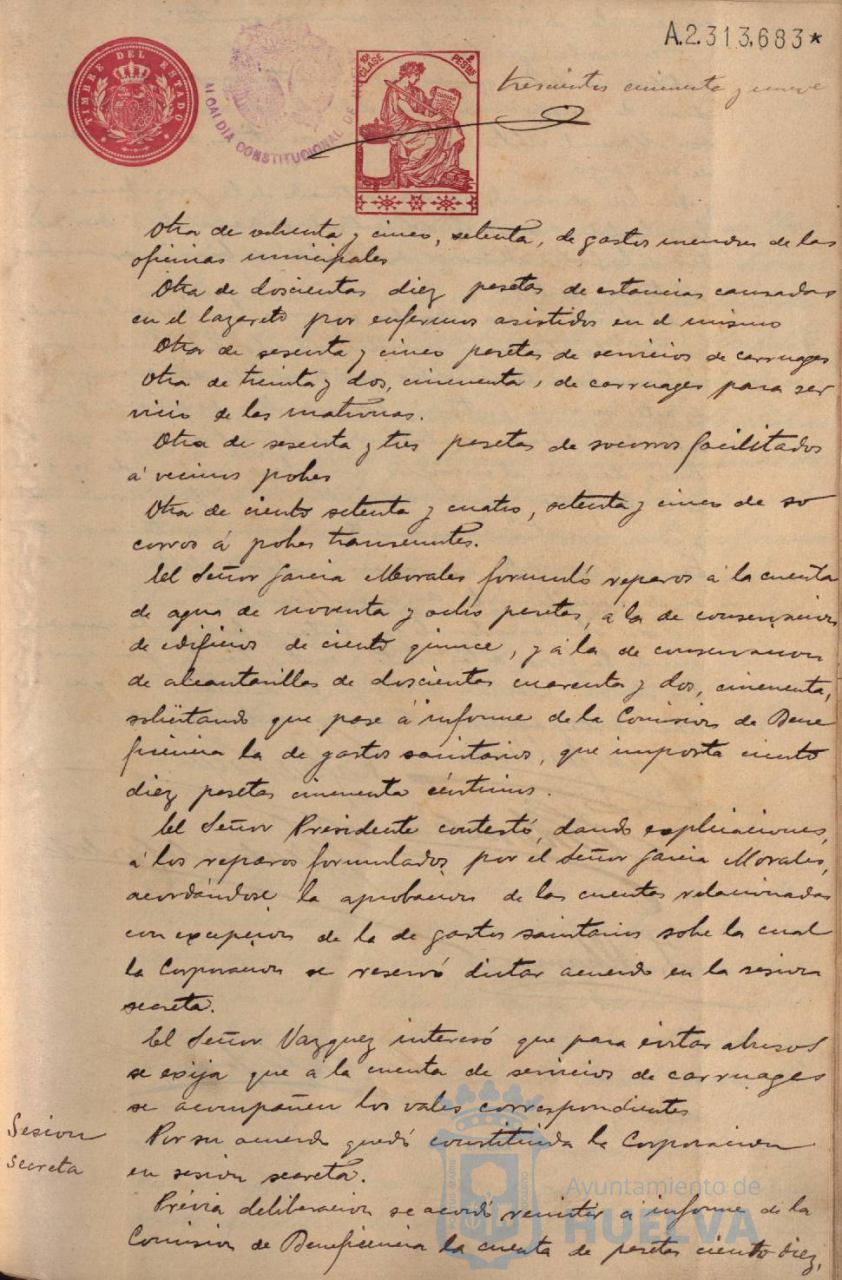 A.2.313.683*
TIMBRE DEL ESTADO
ALCALDÍA CONSTITUCIONAL DE
10ª CLASE
2 PESETAS
trescientos cincuenta y nueve
Otra de ochenta y cinco, setenta, de gastos menores de las
oficinas municipales
Otra de doscientas diez pesetas de estancias causadas
en el lazareto por enfermos asistidos en el mismo
Otra de sesenta y cinco pesetas de servicios de carruages
Otra de treinta y dos, cincuenta, de carruages para ser
vicio de las matronas.
Otra de sesenta y tres pesetas de socorros facilitados
á vecinos pobres
Otra de ciento setenta y cuatro, setenta y cinco de so
corros á pobres transeuntes.
El Señor Garcia Morales formuló reparos á la cuenta
de agua de noventa y ocho pesetas, á la de conservacion
de edificios de ciento quince, y á la de conservacion
de alcantarillas de doscientas cuarenta y dos, cincuenta,
solicitando que pase á informe de la Comision de Bene
ficencia la de gastos sanitarios, que importa ciento
diez pesetas cincuenta céntimos.
El Señor Presidente contestó, dando explicaciones,
á los reparos formulados por el Señor Garcia Morales,
acordándose la aprobacion de las cuentas relacionadas
con excepcion de la de gastos sanitarios sobre la cual
la Corporacion se reservó dictar acuerdo en la sesion
secreta.
El Señor Vazquez interesó que para evitar abusos
se exija que á la cuenta de servicios de carruages
se acompañen los vales correspondientes
Sesion
secreta
Por su acuerdo quedó constituida la Corporacion
en sesion secreta.
Prévia deliberacion se acordó remitir a informe de la
Comision de Beneficencia la cuenta de pesetas ciento diez,
Ayuntamiento de
HUELVA